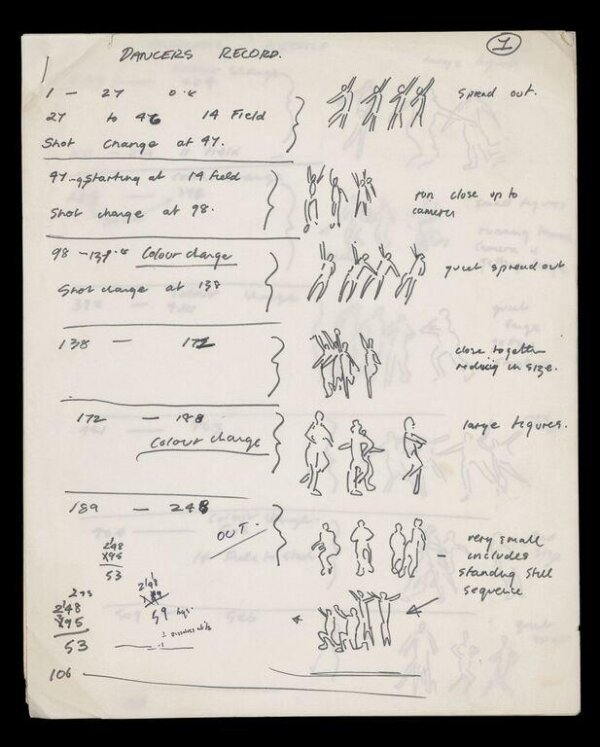 1
DANCERS RECORD.
1 — 27 o.k
27 to 46 14 Field
Shot change at 47.
spread out.
47 — starting at 14 field
Shot change at 98.
run close up to
camera
98 — 138 Colour change
Shot change at 138
quiet spread out
138 — 172
close together
reducing in size.
172 — 188
Colour change
large figures.
189 — 248
OUT.
very small
includes
standing still
sequence
248
53
248
59
248
53
106